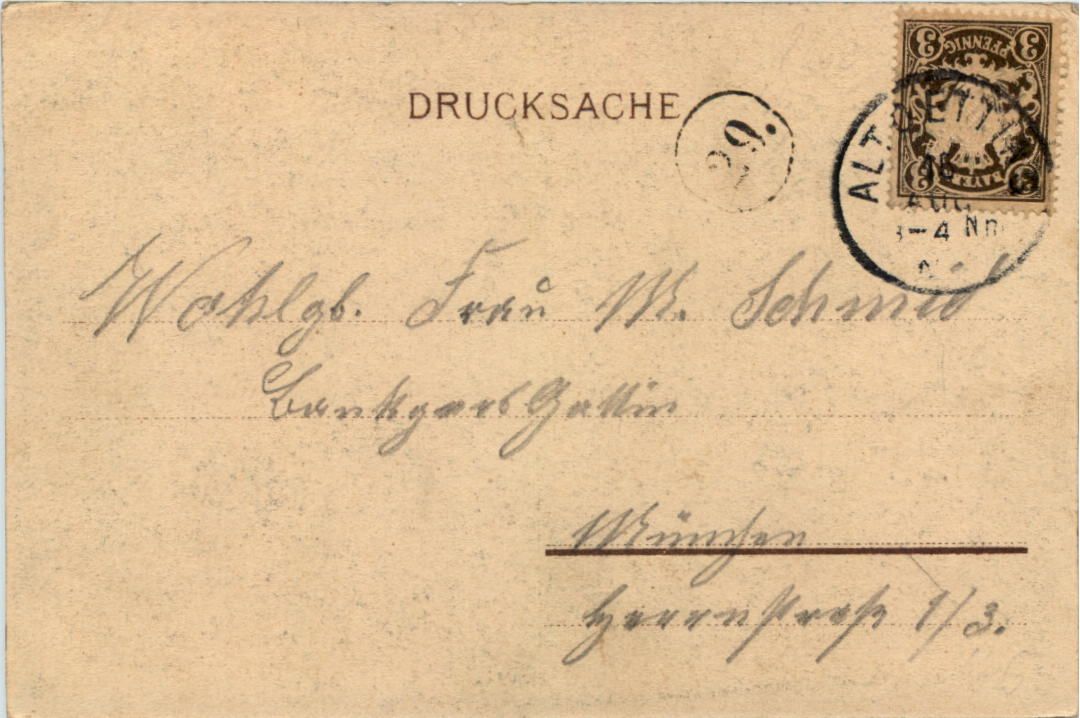 DRUCKSACHE
29.
3 PFENNIG 3
BAYERN
3 3
ALTOETTI
16
AUG
3-4 Nm
Wohlgb. Frau M. Schmid
Gattin
München
Herrnstraße 1/3.